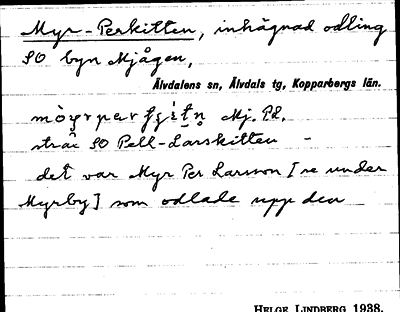 Myr-Perkitten, inhägnad odling
SO byn Mjågen,
Älvdalens sn, Älvdals tg, Kopparbergs län.
Mj. Pd.
strax SO Pell-Larskitten -
det var Myr Per Larsson [se under
Myrby] som odlade upp den
HELGE LINDBERG 1938.